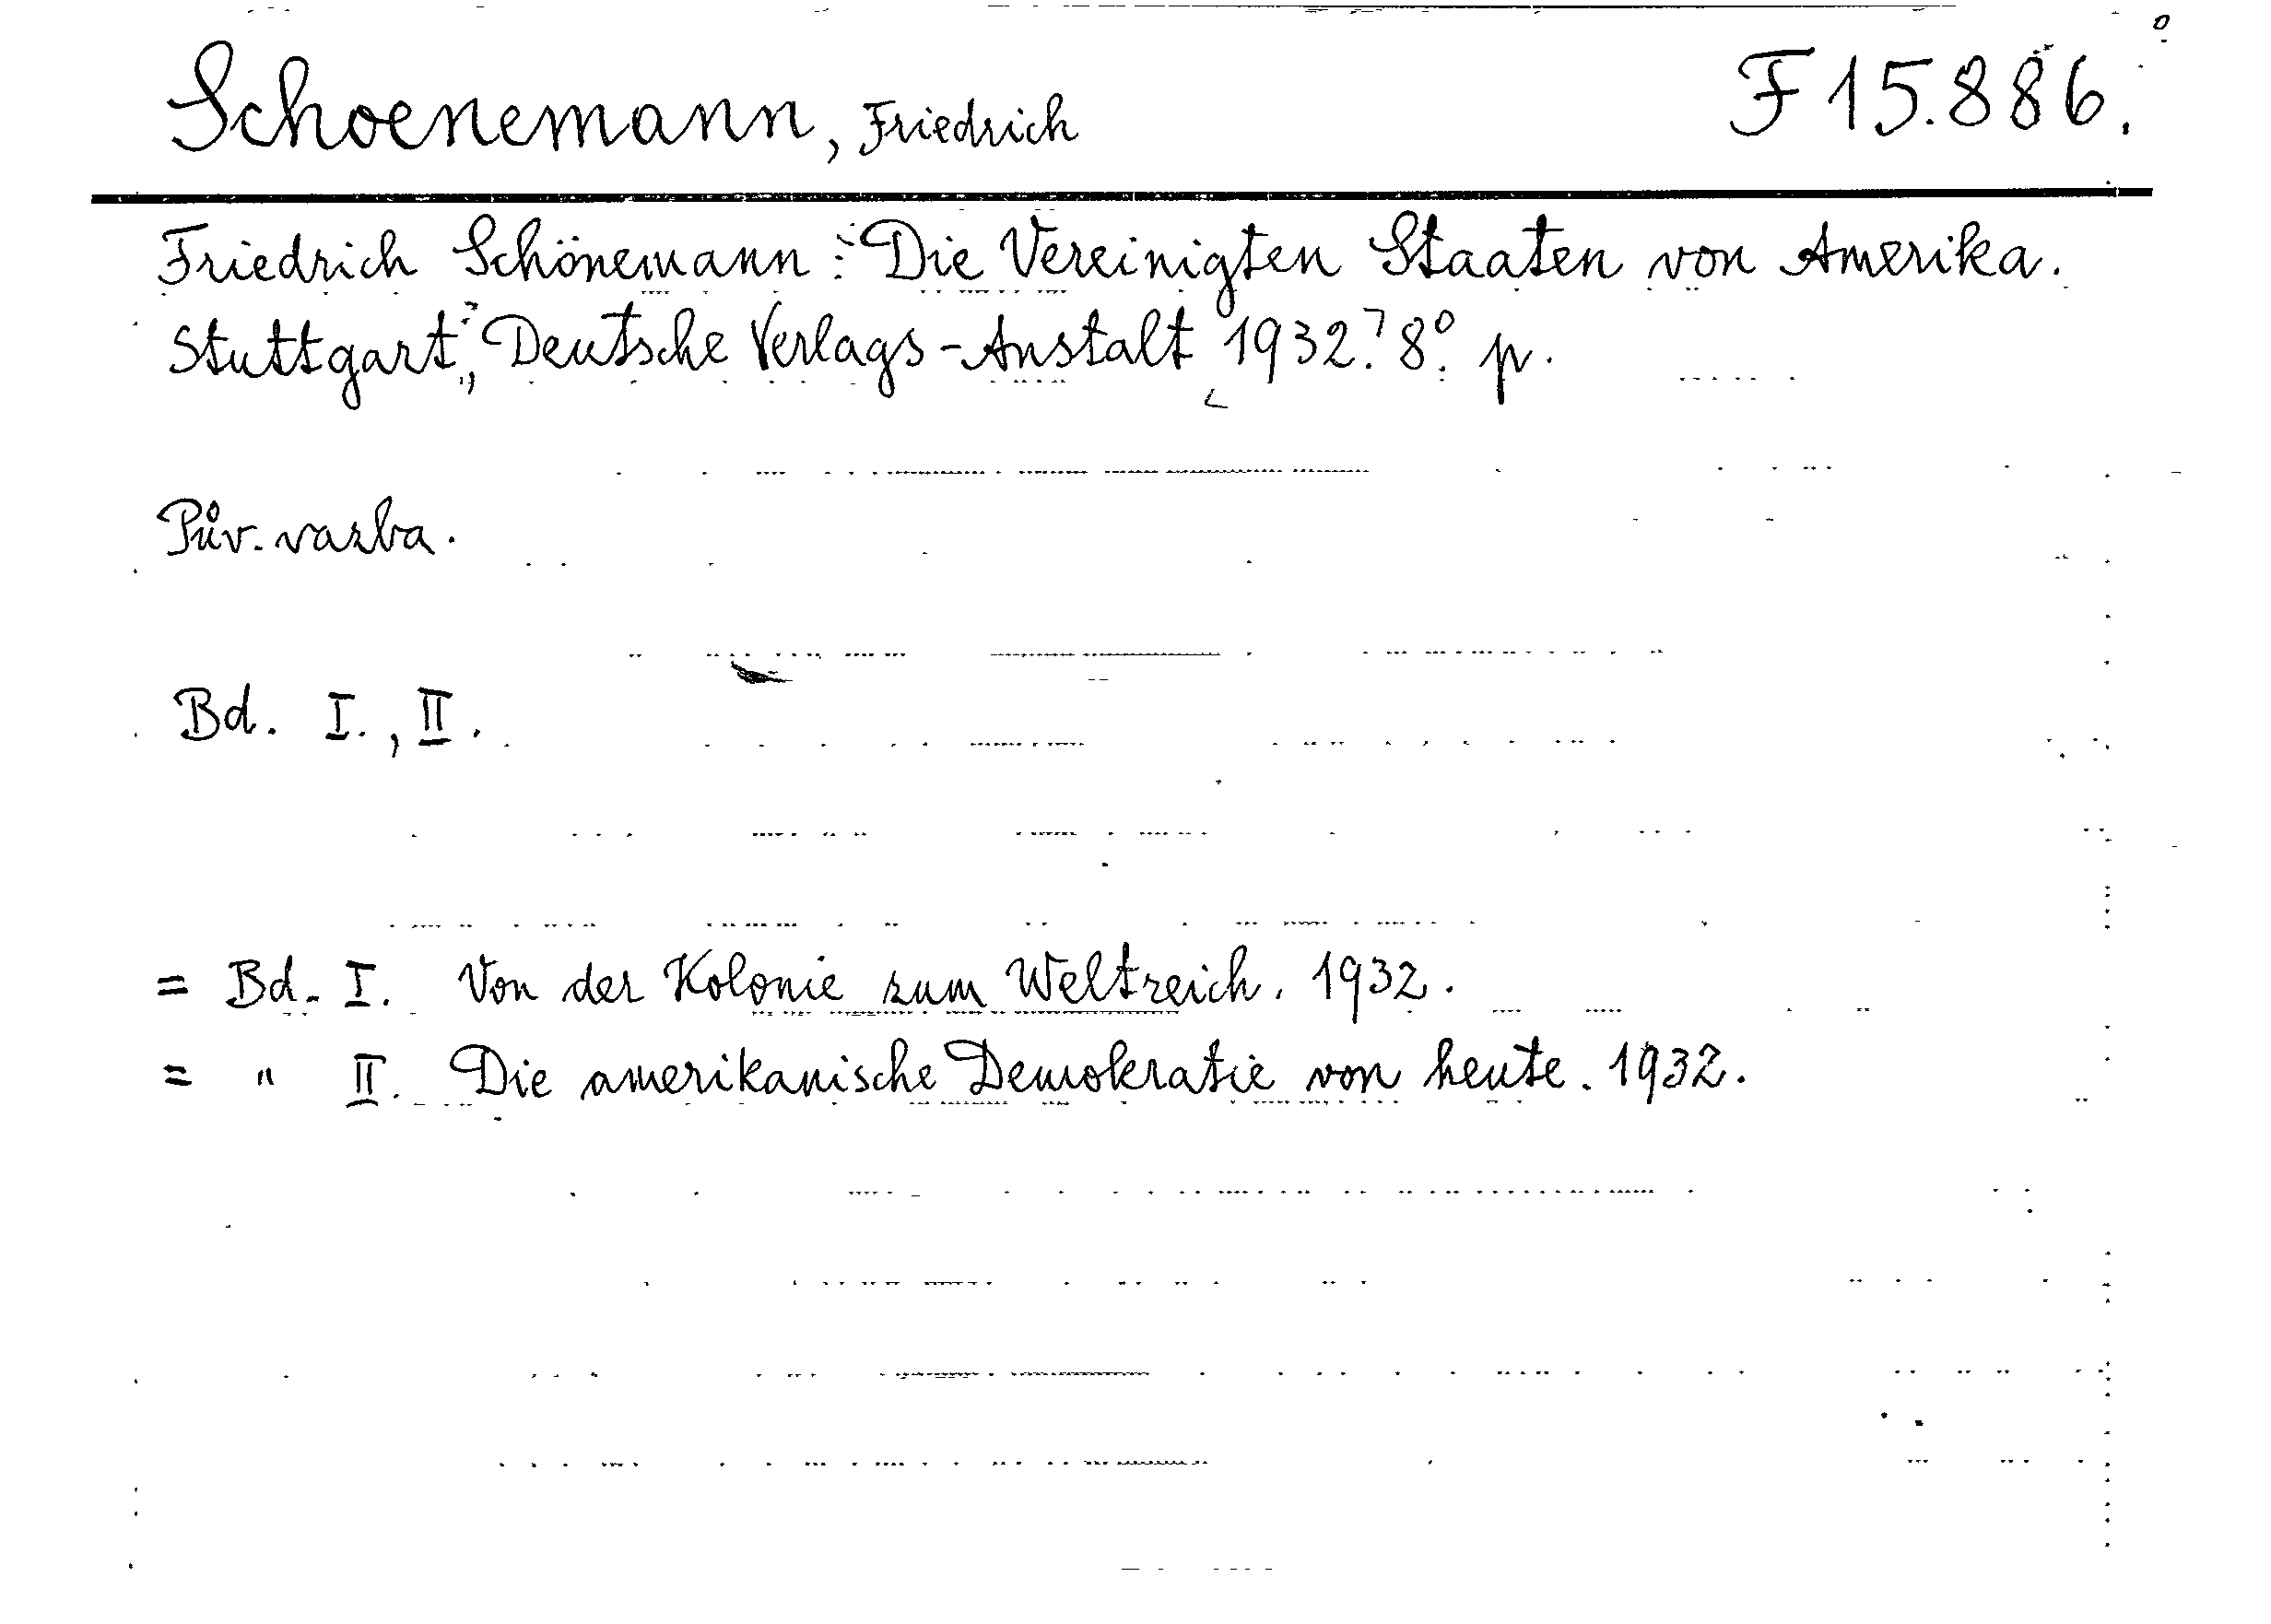 Schoenemann, Friedrich F 15.886.
Friedrich Schönemann: Die Vereinigten Staaten von Amerika.
Stuttgart, Deutsche Verlags-Anstalt 1932. 8° p.
Pův. vazba.
Bd. I., II.
= Bd. I. Von der Kolonie zum Weltreich. 1932.
= " II. Die amerikanische Demokratie von heute. 1932.